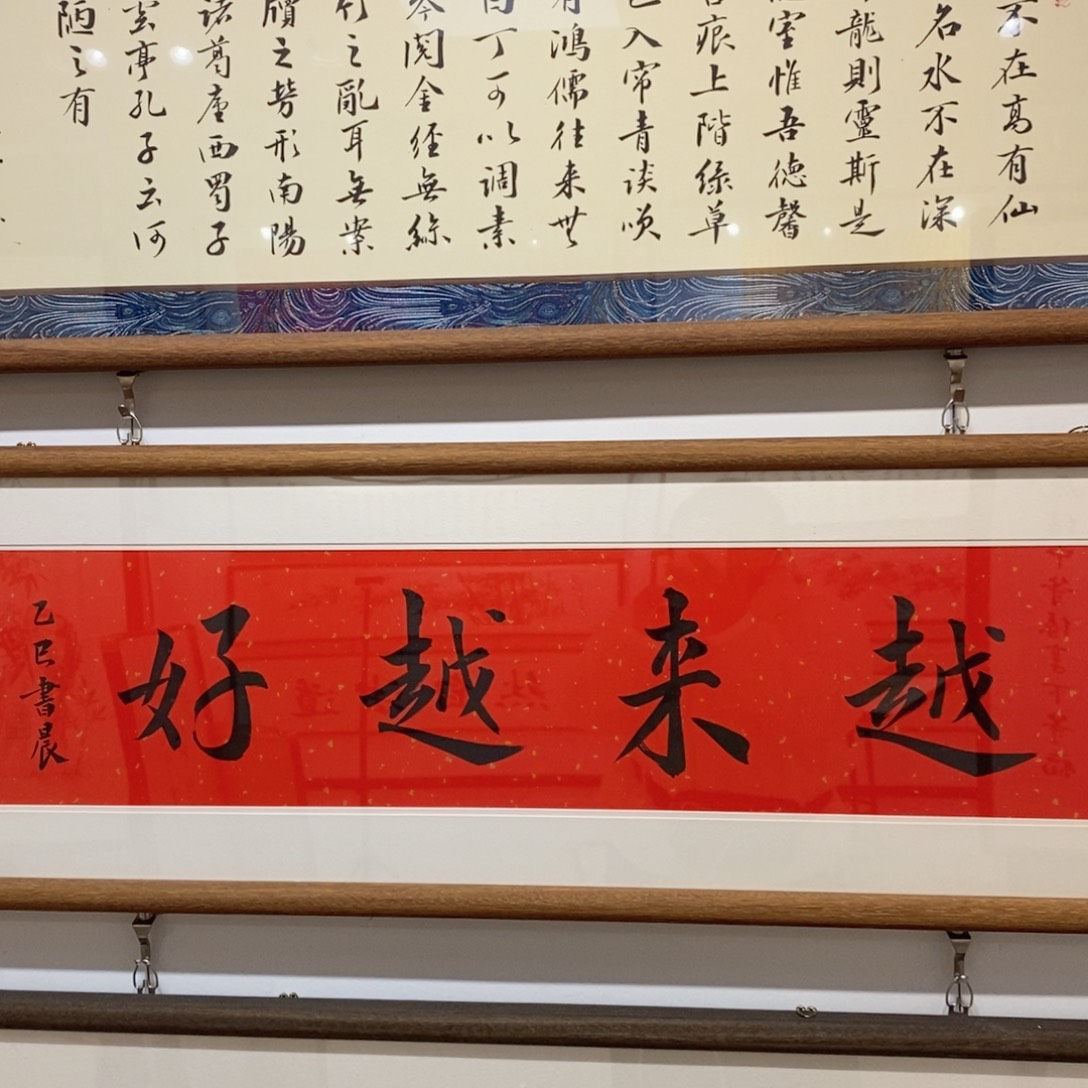 不在高有仙
名水不在深
龍則靈斯是
室惟吾德馨
痕上階綠草
入帘青谈咲
有鴻儒往来無
白丁可以调素
琴閲金經無絲
竹之亂耳無案
牘之勞形南陽
诸葛廬西蜀子
雲亭孔子云何
陋之有
越来越好
乙巳書晨